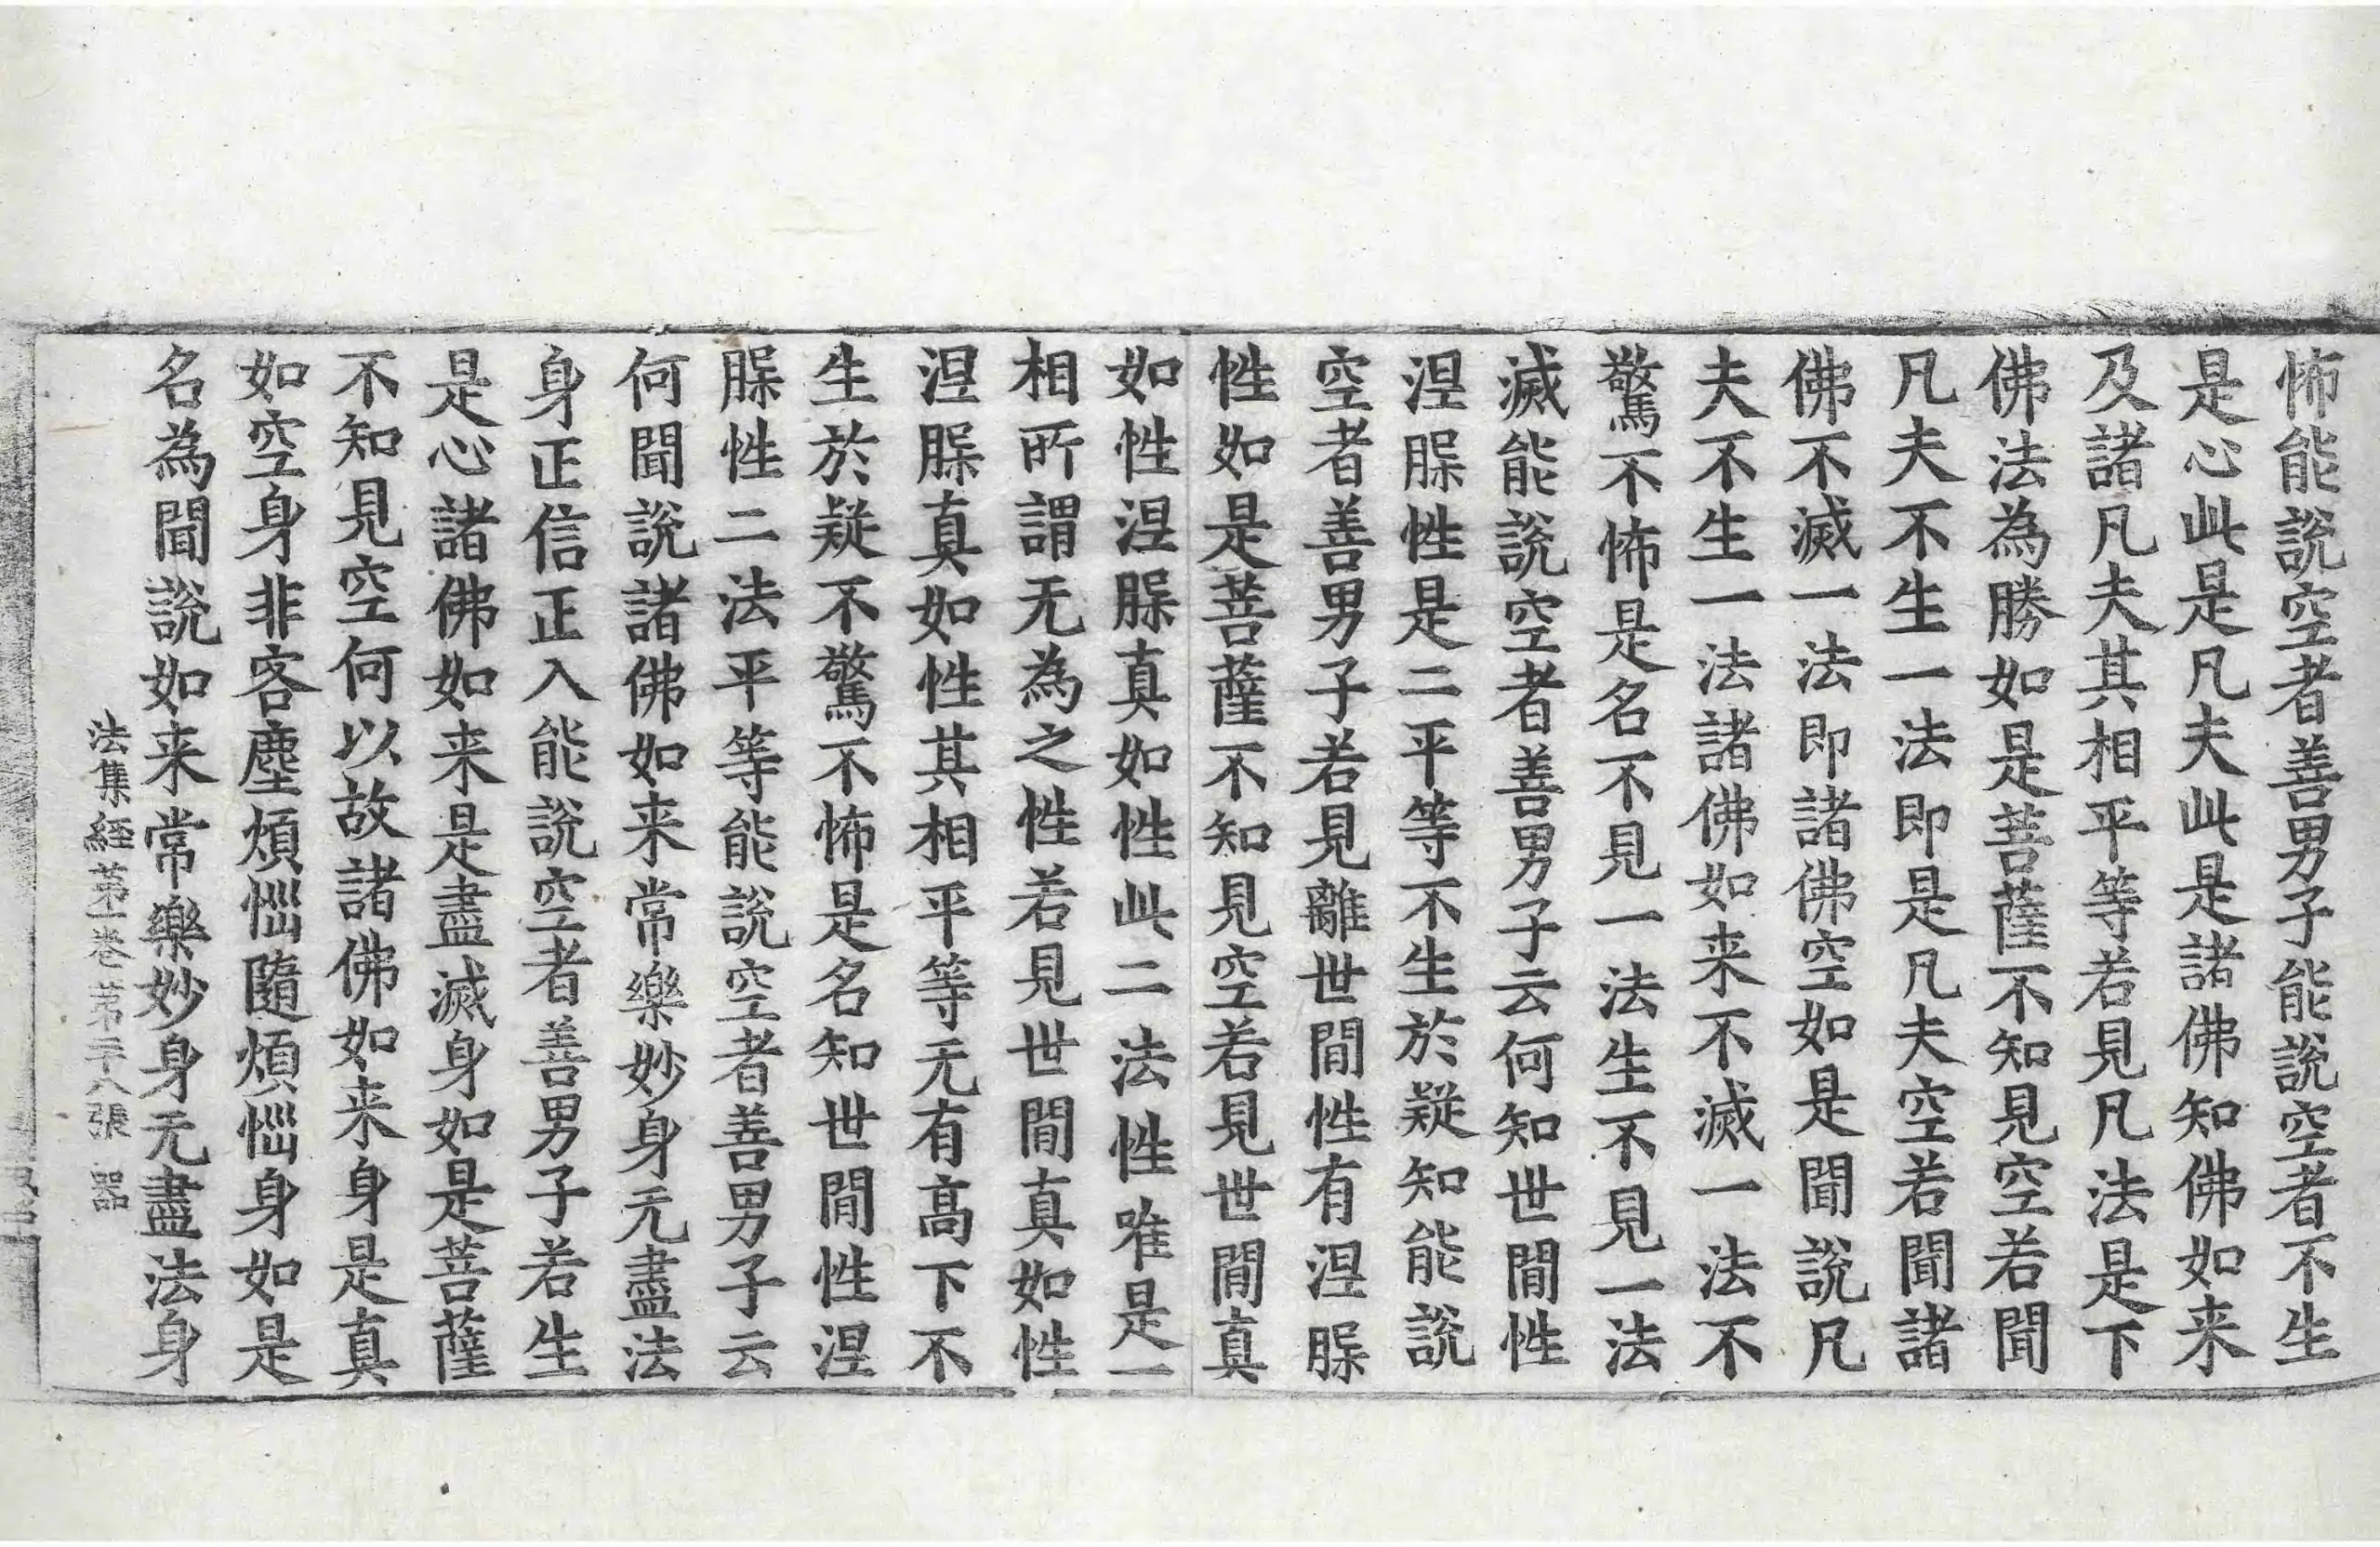 怖能說空者善男子能說空者不生
是心此是凡夫此是諸佛知佛如来
及諸凡夫其相平等若見凡法是下
佛法為勝如是菩薩不知見空若聞
凡夫不生一法即是凡夫空若聞諸
佛不滅一法即諸佛空如是聞說凡
夫不生一法諸佛如来不滅一法不
驚不怖是名不見一法生不見一法
滅能說空者善男子云何知世間性
涅腂性是二平等不生於疑知能說
空者善男子若見離世間性有涅腂
性如是菩薩不知見空若見世間真
如性涅腂真如性此二法性唯是一
相所謂无為之性若見世間真如性
涅腂真如性其相平等无有高下不
生於疑不驚不怖是名知世間性涅
腂性二法平等能說空者善男子云
何聞說諸佛如来常樂妙身无盡法
身正信正入能說空者善男子若生
是心諸佛如来是盡滅身如是菩薩
不知見空何以故諸佛如来身是真
如空身非客塵煩惱隨煩惱身如是
名為聞說如来常樂妙身无盡法身
法集經第一卷 第二十八張 器